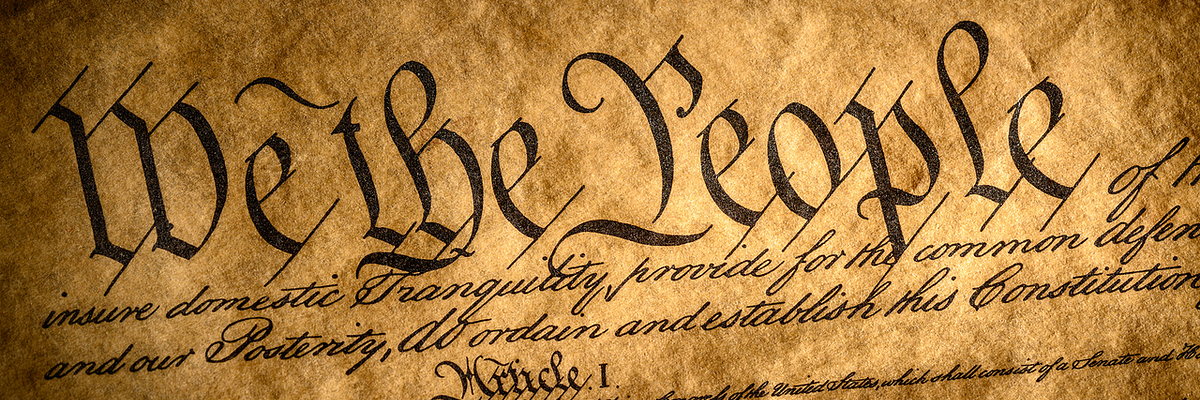 We the People of
insure domestic Tranquility, provide for the common defen
and our Posterity, do ordain and establish this Constitution
Article. I.
of the United States, which shall consist of a Senate and